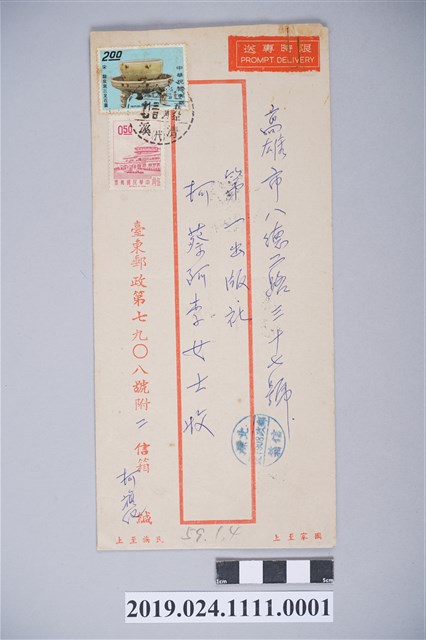 限時專送
PROMPT DELIVERY
2.00
0.50
高雄市八德二路三十七號
第一出版社
柯蔡阿李女士收
臺東郵政第七九〇八號附二信箱
柯旗化
緘
國家至上
民族至上
59.1.4
5cm
2019.024.1111.0001